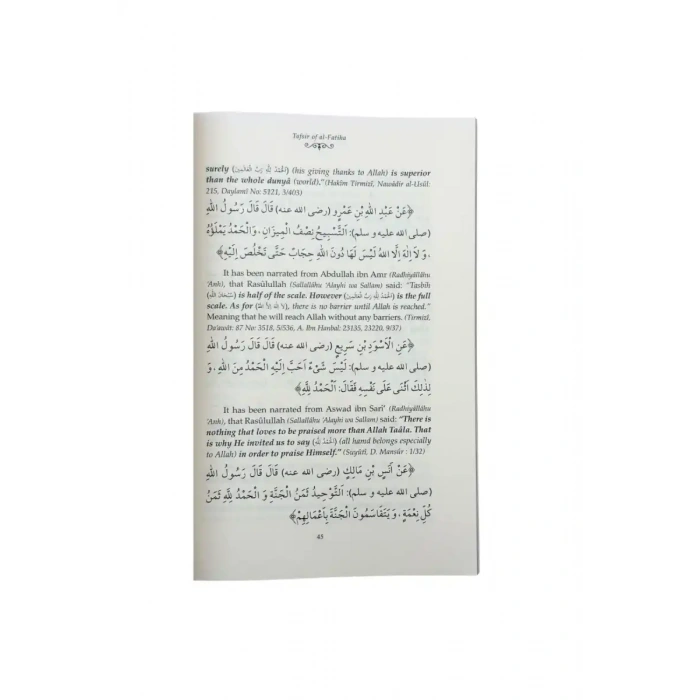 Tafsir of al-Fatiha
surely (اَلْحَمْدُ لِلّٰهِ رَبِّ الْعَالَمِينَ) (his giving thanks to Allah) is superior
than the whole dunyâ (world)." (Hakîm Tirmizî, Nawâdir al-Usûl:
215, Daylamî No: 5121, 3/403)
﴿عَنْ عَبْدِ اللهِ بْنِ عَمْرٍو (رضى الله عنه) قَالَ قَالَ رَسُولُ اللهِ
(صلى الله عليه و سلم): اَلتَّسْبِيحُ نِصْفُ الْمِيزَانِ، وَالْحَمْدُ يَمْلَؤُهُ
، وَ لَا اِلٰهَ اِلَّا اللهُ لَيْسَ لَهَا دُونَ اللهِ حِجَابٌ حَتَّى تَخْلُصَ اِلَيْهِ﴾
It has been narrated from Abdullah ibn Amr (Radhiyallâhu
'Anh), that Rasûlullah (Sallallâhu 'Alayhi wa Sallam) said: "Tasbih
(سُبْحَانَ اللهِ) is half of the scale. However (اَلْحَمْدُ لِلّٰهِ رَبِّ الْعَالَمِينَ) is the full
scale. As for (لَا اِلٰهَ اِلَّا اللهُ), there is no barrier until Allah is reached."
Meaning that he will reach Allah without any barriers. (Tirmizî,
Da'awât: 87 No: 3518, 5/536, A. Ibn Hanbal: 23135, 23220, 9/37)
﴿عَنِ الْاَسْوَدِ بْنِ سَرِيعٍ (رضى الله عنه) قَالَ قَالَ رَسُولُ اللهِ
(صلى الله عليه و سلم): لَيْسَ شَىْءٌ اَحَبَّ اِلَيْهِ الْحَمْدُ مِنَ اللهِ، وَ
لِذٰلِكَ اَثْنَى عَلَى نَفْسِهِ فَقَالَ: اَلْحَمْدُ لِلّٰهِ﴾
It has been narrated from Aswad ibn Sarî' (Radhiyallâhu
'Anh), that Rasûlullah (Sallallâhu 'Alayhi wa Sallam) said: "There is
nothing that loves to be praised more than Allah Taâla. That
is why He invited us to say (اَلْحَمْدُ لِلّٰهِ) (all hamd belongs especially
to Allah) in order to praise Himself." (Suyûtî, D. Mansûr : 1/32)
﴿عَنْ اَنَسِ بْنِ مَالِكٍ (رضى الله عنه) قَالَ قَالَ رَسُولُ اللهِ
(صلى الله عليه و سلم): اَلتَّوْحِيدُ ثَمَنُ الْجَنَّةِ وَ الْحَمْدُ لِلّٰهِ ثَمَنُ
كُلِّ نِعْمَةٍ، وَ يَتَقَاسَمُونَ الْجَنَّةَ بِاَعْمَالِهِمْ﴾
45